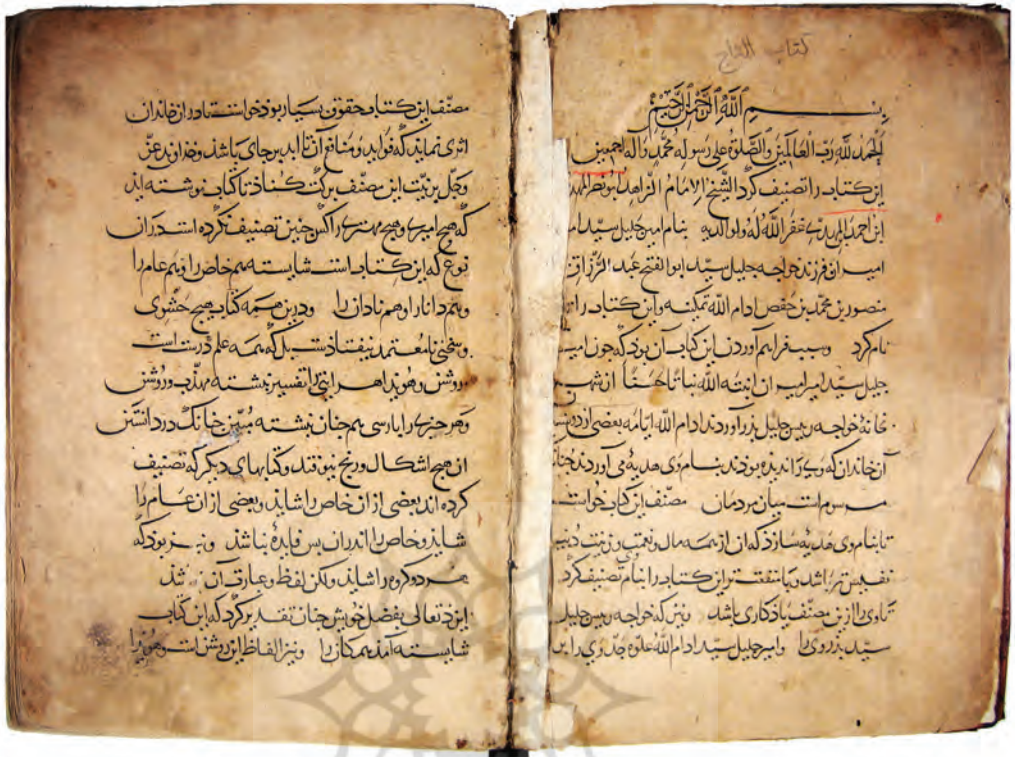 كتاب التاج
بسم الله الرحمن الرحيم
الحمد لله رب العالمين والصلوة على رسوله محمد وآله اجمعين
این کتاب را تصنیف کرد الشیخ الامام الزاهد ابونصر
ابن احمد غفر الله له ولوالدیه بنام امیر جلیل سید
امیران فرزند خواجه جلیل سید ابوالفتح عبد الرزاق بن
منصور بن محمد بن حفص ادام الله تمکینه واین کتاب را
نام کرد وسبب فراهم آوردن این کتاب آن بود که چون امیر
جلیل سید امیر امیران انبته الله نباتا حسنا از
خانهٔ خواجه رییس جلیل بدر آوردند ادام الله ایامه بعضی از
آن خاندان که وی را دیده بودند بنام وی هدیه می آوردند
رسم است میان مردمان مصنف این کتاب خواست
تا بنام وی هدیه سازد که آن از همه مال ونعمت وزینت
نفیس تر باشد وبا منفعت تر این کتاب را بنام تصنیف کرد
تا وی را از این مصنف یادکاری باشد ونیز که خواجه رییس جلیل
سید بذر وی را وامیر جلیل سید ادام الله علوه جد وی را بر
مصنف این کتاب حقوق بسیار بوذ خواست تا در آن خاندان
اثری نماید که فواید ومنافع آن تا ابد بر جای باشد وخداوند عز
وجل بر نیت این مصنف برکت کناد تا کتاب نوشته اند
که هیچ امیری وهیچ مهتری را کس چنین تصنیف نکرده است در آن
نوع که این کتاب است شایسته هم خاص را وهم عام را
وهم دانا را وهم نادان را ودرین همه کتاب هیچ حشوی
وسخنی نامعتمد نیفتاذست بلکه همه علم درست است
وروشن وهویدا هر آیتی را تفسیر نبشته مهذب وروشن
وهر چیزی را بارسی هم چنان نبشته مبین چنانک در دانستن
آن هیچ اشکال ورنج نیوفتد وکتابهای دیکر که تصنیف
کرده اند بعضی از آن خاص را شاید وبعضی از آن عام را
شاید وخاص را اندران بس فایدهٔ نباشد ونیز بود که
هر دو کروه را شاید ولکن لفظ وعبارت آن شذ
ایزد تعالی بفضل خویش چنان تقدیر کرد که این کتاب
شایسته آمد همکان را ونیز الفاظ این روشن است وهویدا